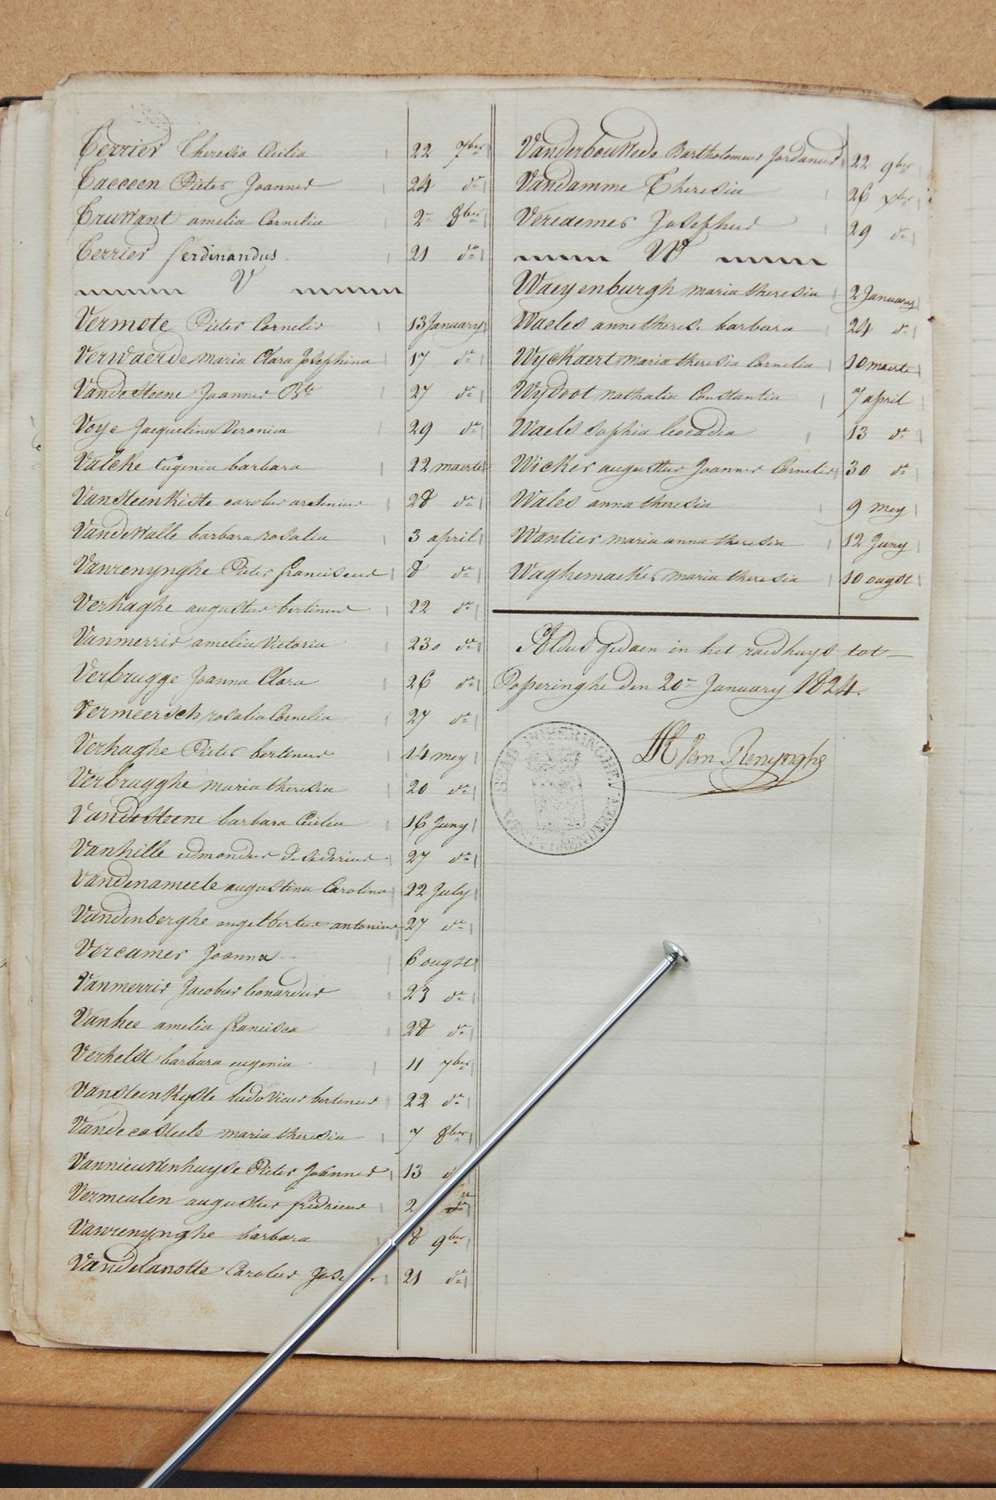 Terrier Theresia Cecilia 22 7ber
Taccoen Pieter Joannes 24 do
Truwant amelia Cornelia 2 8ber
Terrier ferdinandus 21 do
V
Vermote Pieter Cornelis 13 January
Verwaerde maria Clara Josephina 17 do
Vandesteene Joannes Bte 27 do
Voye Jacquelina Veronica 29 do
Valcke Eugenia barbara 22 maerte
Vansteenkiste carolus arsenius 28 do
Vandewalle barbara rosalia 3 april
Vanrenynghe Pieter franciscus 8 do
Verhaghe augustus bertinus 22 do
Vanmerris amelia Victoria 23 do
Verbrugge Joanna Clara 26 do
Vermeersch rosalia Cornelia 27 do
Verhaghe Pieter bertinus 14 mey
Verbrugghe maria theresia 20 do
Vandesteene barbara Cecilia 16 Juny
Vanhille edmondus desiderius 27 do
Vandenameele augustina Carolina 22 July
Vandenberghe angelbertus antonius 27 do
Vercamer Joanna 6 ougst
Vanmerris Jacobus leonardus 23 do
Vanhee amelia francisca 28 do
Verhelst barbara eugenia 11 7ber
Vansteenkyste ludovicus bertinus 22 do
Vandecasteele maria theresia 7 8ber
Vannieuwenhuyse Pieter Joannes 13
Vermeulen augustus fredricus
Vanrenynghe barbara 8 9ber
Vandelanotte Carolus 21 do
Vanderbouwede Bartholomeus Jordanus 22 9ber
Vandamme Theresia 26 xber
Vercaemer Josephus 29 do
W
Waeyenburgh maria theresia 2 January
Waeles anne theres. barbara 24 do
Wyckaert maria theresia Cornelia 10 maerte
Wydoot nathalia Constantia 7 april
Waels sophia leocadia 13 do
Wicker augustus Joannes Cornelis 30 do
Wales anna theresia 9 mey
Wantier maria anna theresia 12 Juny
Waghemacker maria theresia 10 ougst
Aldus gedaen in het raedhuys tot
Poperinghe den 20n January 1824.
Van Renynghe